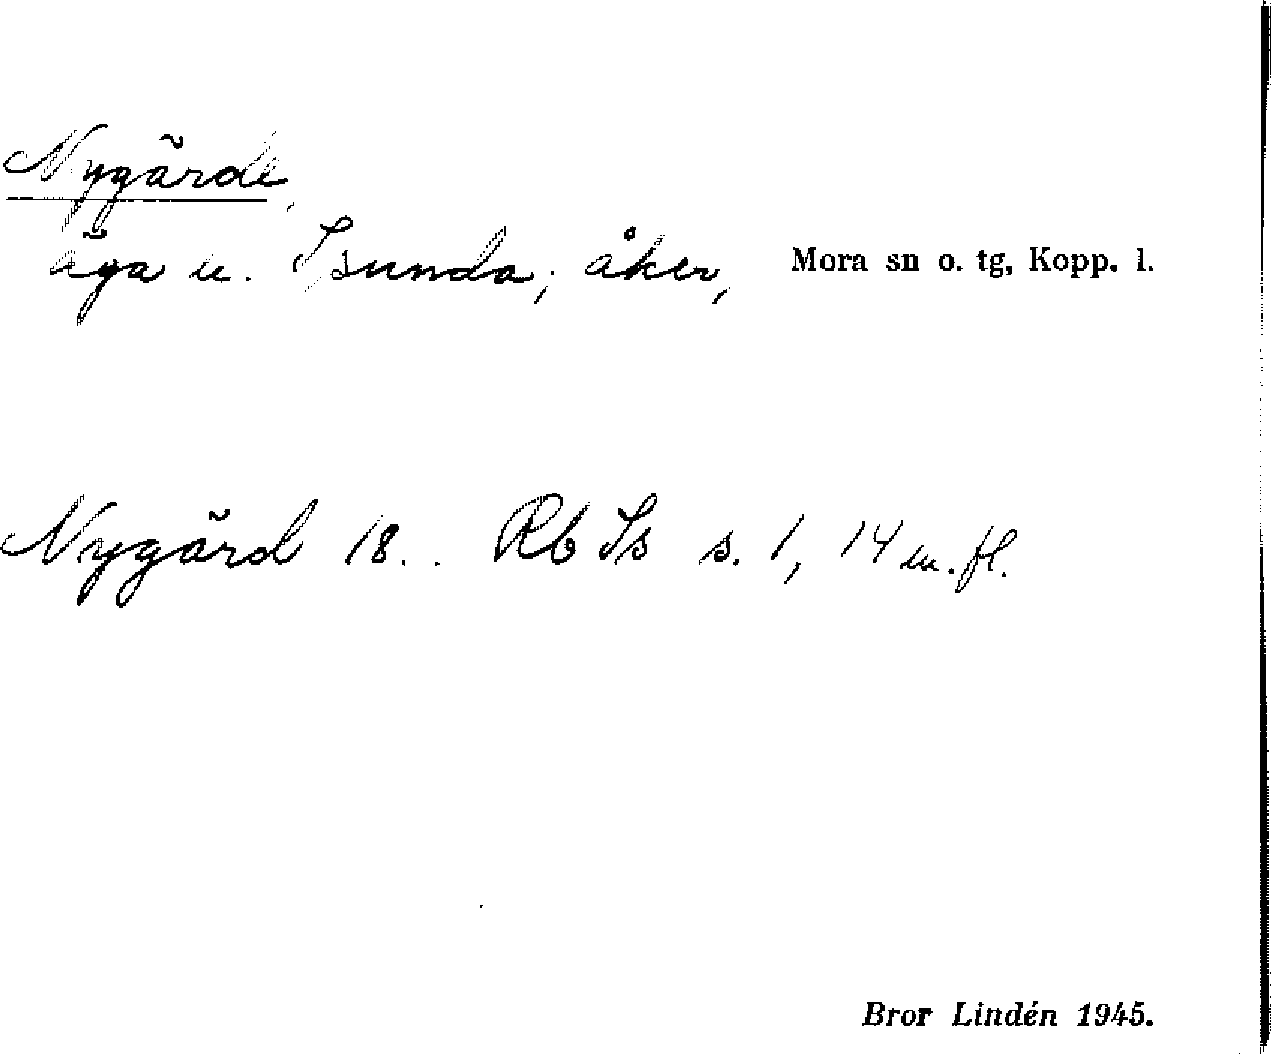 Nygärde,
äga u. Isunda; åker, Mora sn o. tg, Kopp. l.
Nygärd 18.. Rb Is s. 1, 14 m. fl.
Bror Lindén 1945.